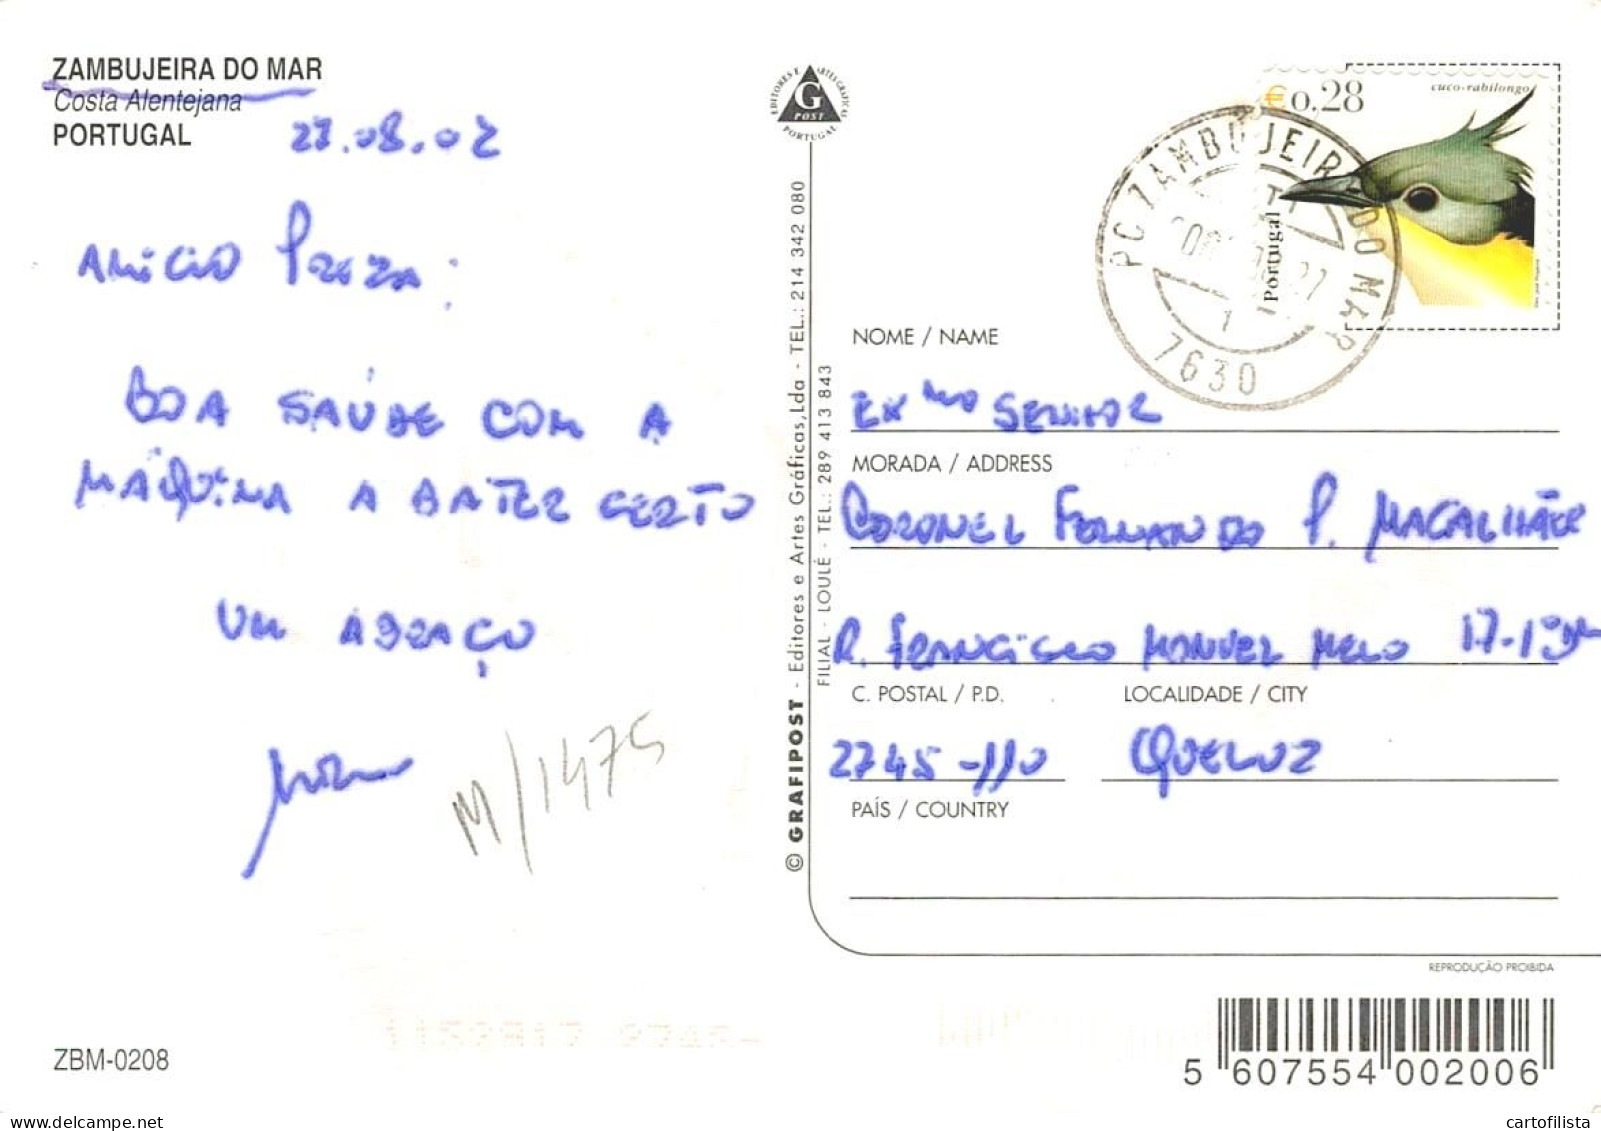 ZAMBUJEIRA DO MAR
Costa Alentejana
PORTUGAL
27.08.02
AMIGO
BOA SAÚDE COM A
MÁQUINA A BATER CERTO
UM ABRAÇO
M/1475
ZBM-0208
delcampe.net
EDITORES E ARTES GRÁFICAS
G
POST
PORTUGAL
© GRAFIPOST - Editores e Artes Gráficas,Lda - TEL.: 214 342 080
FILIAL - LOULÉ - TEL.: 289 413 843
€0.28
cuco-rabilongo
Portugal
PC ZAMBUJEIRA DO MAR
7630
NOME / NAME
EXmo SENHOR
MORADA / ADDRESS
CORONEL FERNANDO P. MAGALHÃES
R. FRANCISCO MANUEL MELO 17-1º
C. POSTAL / P.D.
LOCALIDADE / CITY
2745-110 QUELUZ
PAÍS / COUNTRY
REPRODUÇÃO PROIBIDA
5 607554 002006
cartofilista